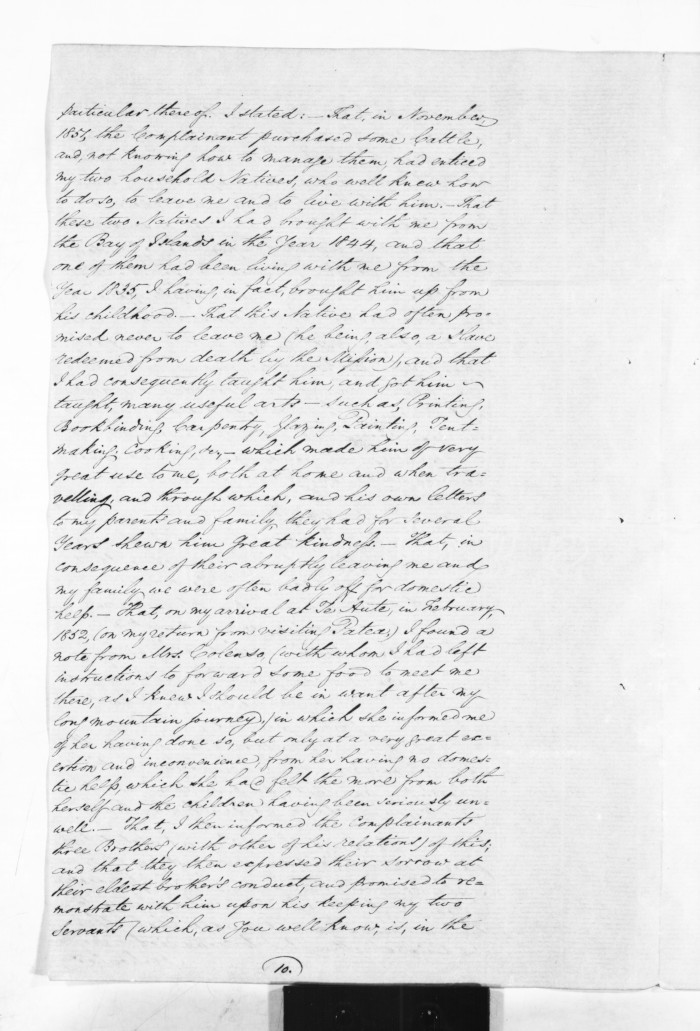 particular thereof. I stated: — That, in November,
1851, the Complainant purchased some Cattle,
and, not knowing how to manage them, had enticed
my two household Natives, who well knew how
to do so, to leave me and to live with him. — That
these two Natives I had brought with me from
the Bay of Islands in the Year 1844, and that
one of them had been living with me from the
Year 1835, I having, in fact, brought him up from
his childhood. — That this Native had often pro-
mised never to leave me (he being, also, a Slave
redeemed from death by the Mission), and that
I had consequently taught him, and got him
taught, many useful arts — such as, Printing,
Bookbinding, Carpentry, Glazing, Painting, Tent-
making, Cooking, &c, — which made him of very
great use to me, both at home and when tra-
velling, and through which, and his own letters
to my parents and family, they had for several
Years shewn him great kindness. — That, in
consequence of their abruptly leaving me and
my family, we were often badly off for domestic
help. — That, on my arrival at Te Aute, in February,
1852, (on my return from visiting Patea,) I found a
note from Mrs. Colenso, (with whom I had left
instructions to forward some food to meet me
there, as I knew I should be in want after my
long mountain journey,) in which she informed me
of her having done so, but only at a very great ex-
ertion and inconvenience, from her having no domes-
tic help, which she had felt the more from both
herself and the children having been seriously un-
well. — That, I then informed the Complainants
three Brothers (with other of his relations) of this;
and that they then expressed their sorrow at
their eldest brother's conduct, and promised to re-
monstrate with him upon his keeping my two
Servants (which, as You well know, is, in the
10.